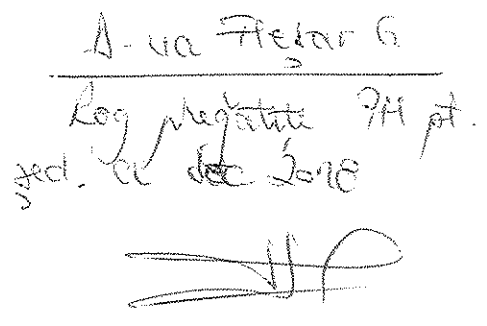 D-na Fleșar G
Rog pregătiți PH pt.
șed. CL dec 2018